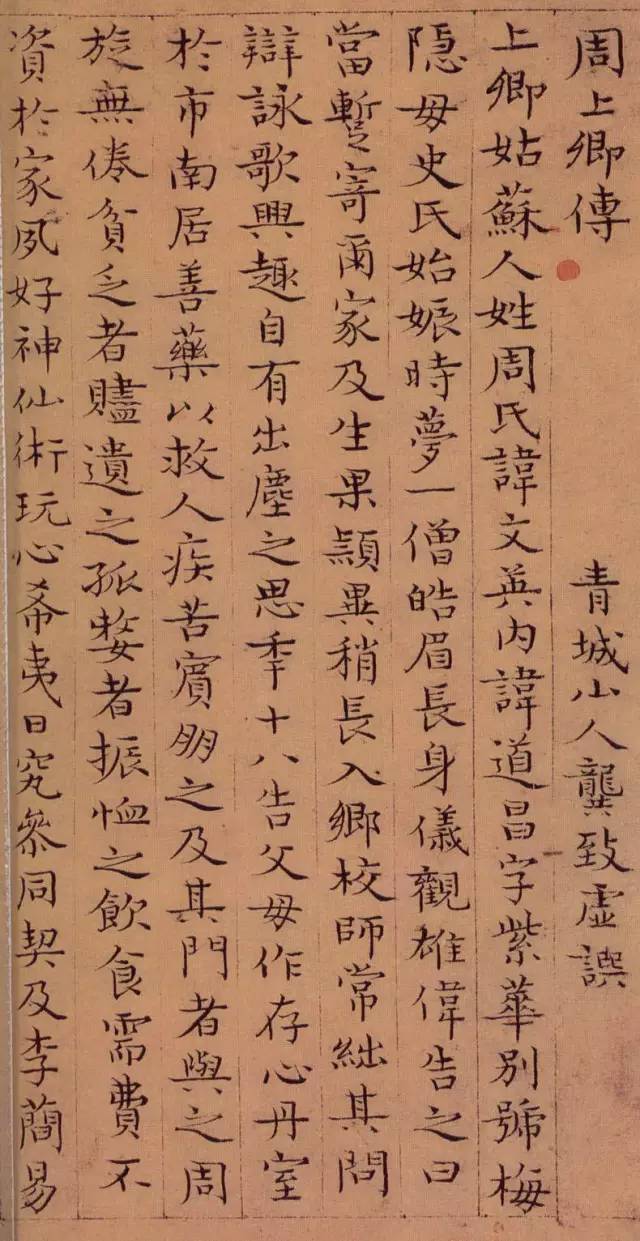 周上卿傳　青城山人龔致虛譔
上卿姑蘇人姓周氏諱文英內諱道昌字紫華別號梅
隱母史氏始娠時夢一僧皓眉長身儀觀雄偉告之曰
當蹔寄爾家及生果頴異稍長入鄉校師常絀其問
辯詠歌興趣自有出塵之思年十八告父母作存心丹室
於市南居善藥以救人疾苦賓朋之及其門者與之周
旋無倦貧乏者贐遺之孤嫠者振恤之飲食需費不
資於家夙好神仙術玩心希夷日究參同契及李蕳易